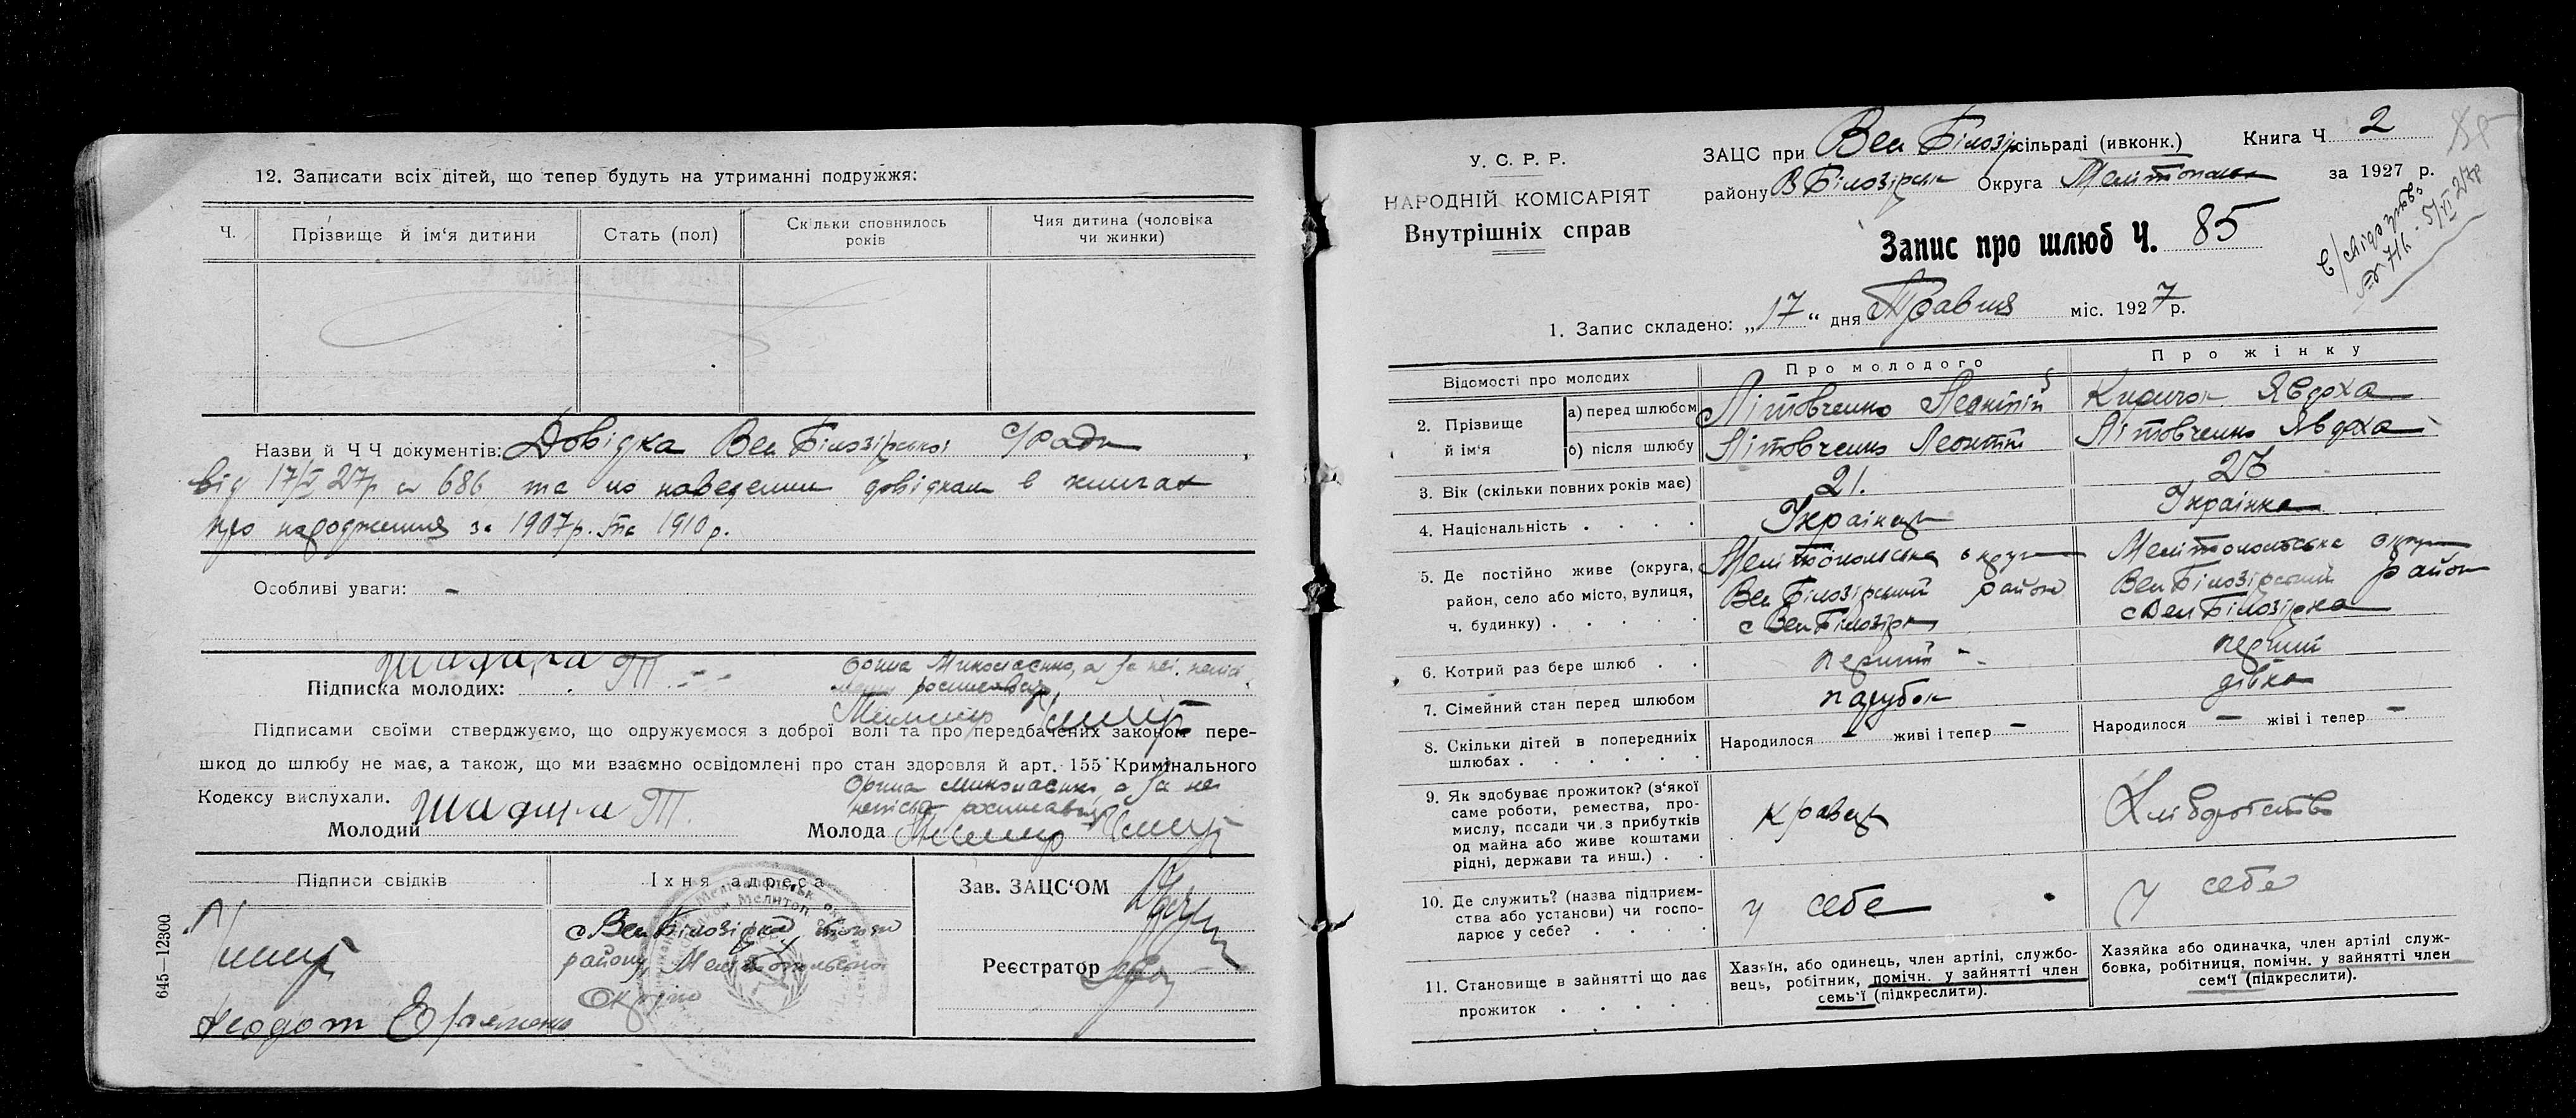 12. Записати всіх дітей, що тепер будуть на утриманні подружжя:
Ч.
Прізвище й ім'я дитини
Стать (пол)
Скільки сповнилось
років
Чия дитина (чоловіка
чи жинки)
Назви й Ч Ч документів: Довідка Вел Білозірської С/Ради
від 17/V 27р № 686 та по наведеним довідкам в книгах
про народження за 1907р. та 1910р.
Особливі уваги: –
Підписка молодих:
Підписами своїми стверджуємо, що одружуємося з доброї волі та про передбачених законом пере-
шкод до шлюбу не має, а також, що ми взаємно освідомлені про стан здоровля й арт. 155 Кримінального
Кодексу вислухали.
Молодий
Молода
Підписи свідків
Їхня адреса
с Вел Білозірка
району, Мелітопольської
Округи
Зав. ЗАЦС'ОМ
Реєстратор
645—12300
У. С. Р. Р.
НАРОДНІЙ КОМІСАРІЯТ
Внутрішніх справ
ЗАЦС при Вел Білозір сільраді (ивконк.) Книга Ч 2
району В Білозірськ Округа Мелітопольськ за 1927 р.
Запис про шлюб Ч. 85
1. Запис складено: „17" дня Травня міс. 1927 р.
Відомості про молодих
Про молодого
Про жінку
2. Прізвище
й ім'я
а) перед шлюбом Літовченко Леонтій Киричок Явдоха
б) після шлюбу Літовченко Леонтій Літовченко Явдоха
3. Вік (скільки повних років має) 21.
4. Національність . . . . Українець Українка
5. Де постійно живе (округа,
район, село або місто, вулиця,
ч. будинку) . . . . .
Мелітопольська округа
Вел Білозірський район
с Вел Білозірка
Мелітопольська округа
Вел Білозірський район
с Вел Білозірка
6. Котрий раз бере шлюб . . перший перший
7. Сімейний стан перед шлюбом парубок дівка
8. Скільки дітей в попередніх
шлюбах . . . . . .
Народилося – живі і тепер –
Народилося – жіві і тепер –
9. Як здобуває прожиток? (з'якої
саме роботи, ремества, про-
мислу, посади чи з прибутків
од майна або живе коштами
рідні, держави та инш.) . .
Кравець
Хліборобство
10. Де служить? (назва підприєм-
ства або установи) чи госпо-
дарює у себе? . . . .
у себе
у себе
11. Становище в зайнятті що дає
прожиток . . . .
Хазяїн, або одинець, член артілі, службо-
вець, робітник, помічн. у зайнятті член
семь'ї (підкреслити).
Хазяйка або одиначка, член артілі служ-
бовка, робітниця, помічн. у зайнятті член
сем'ї (підкреслити).